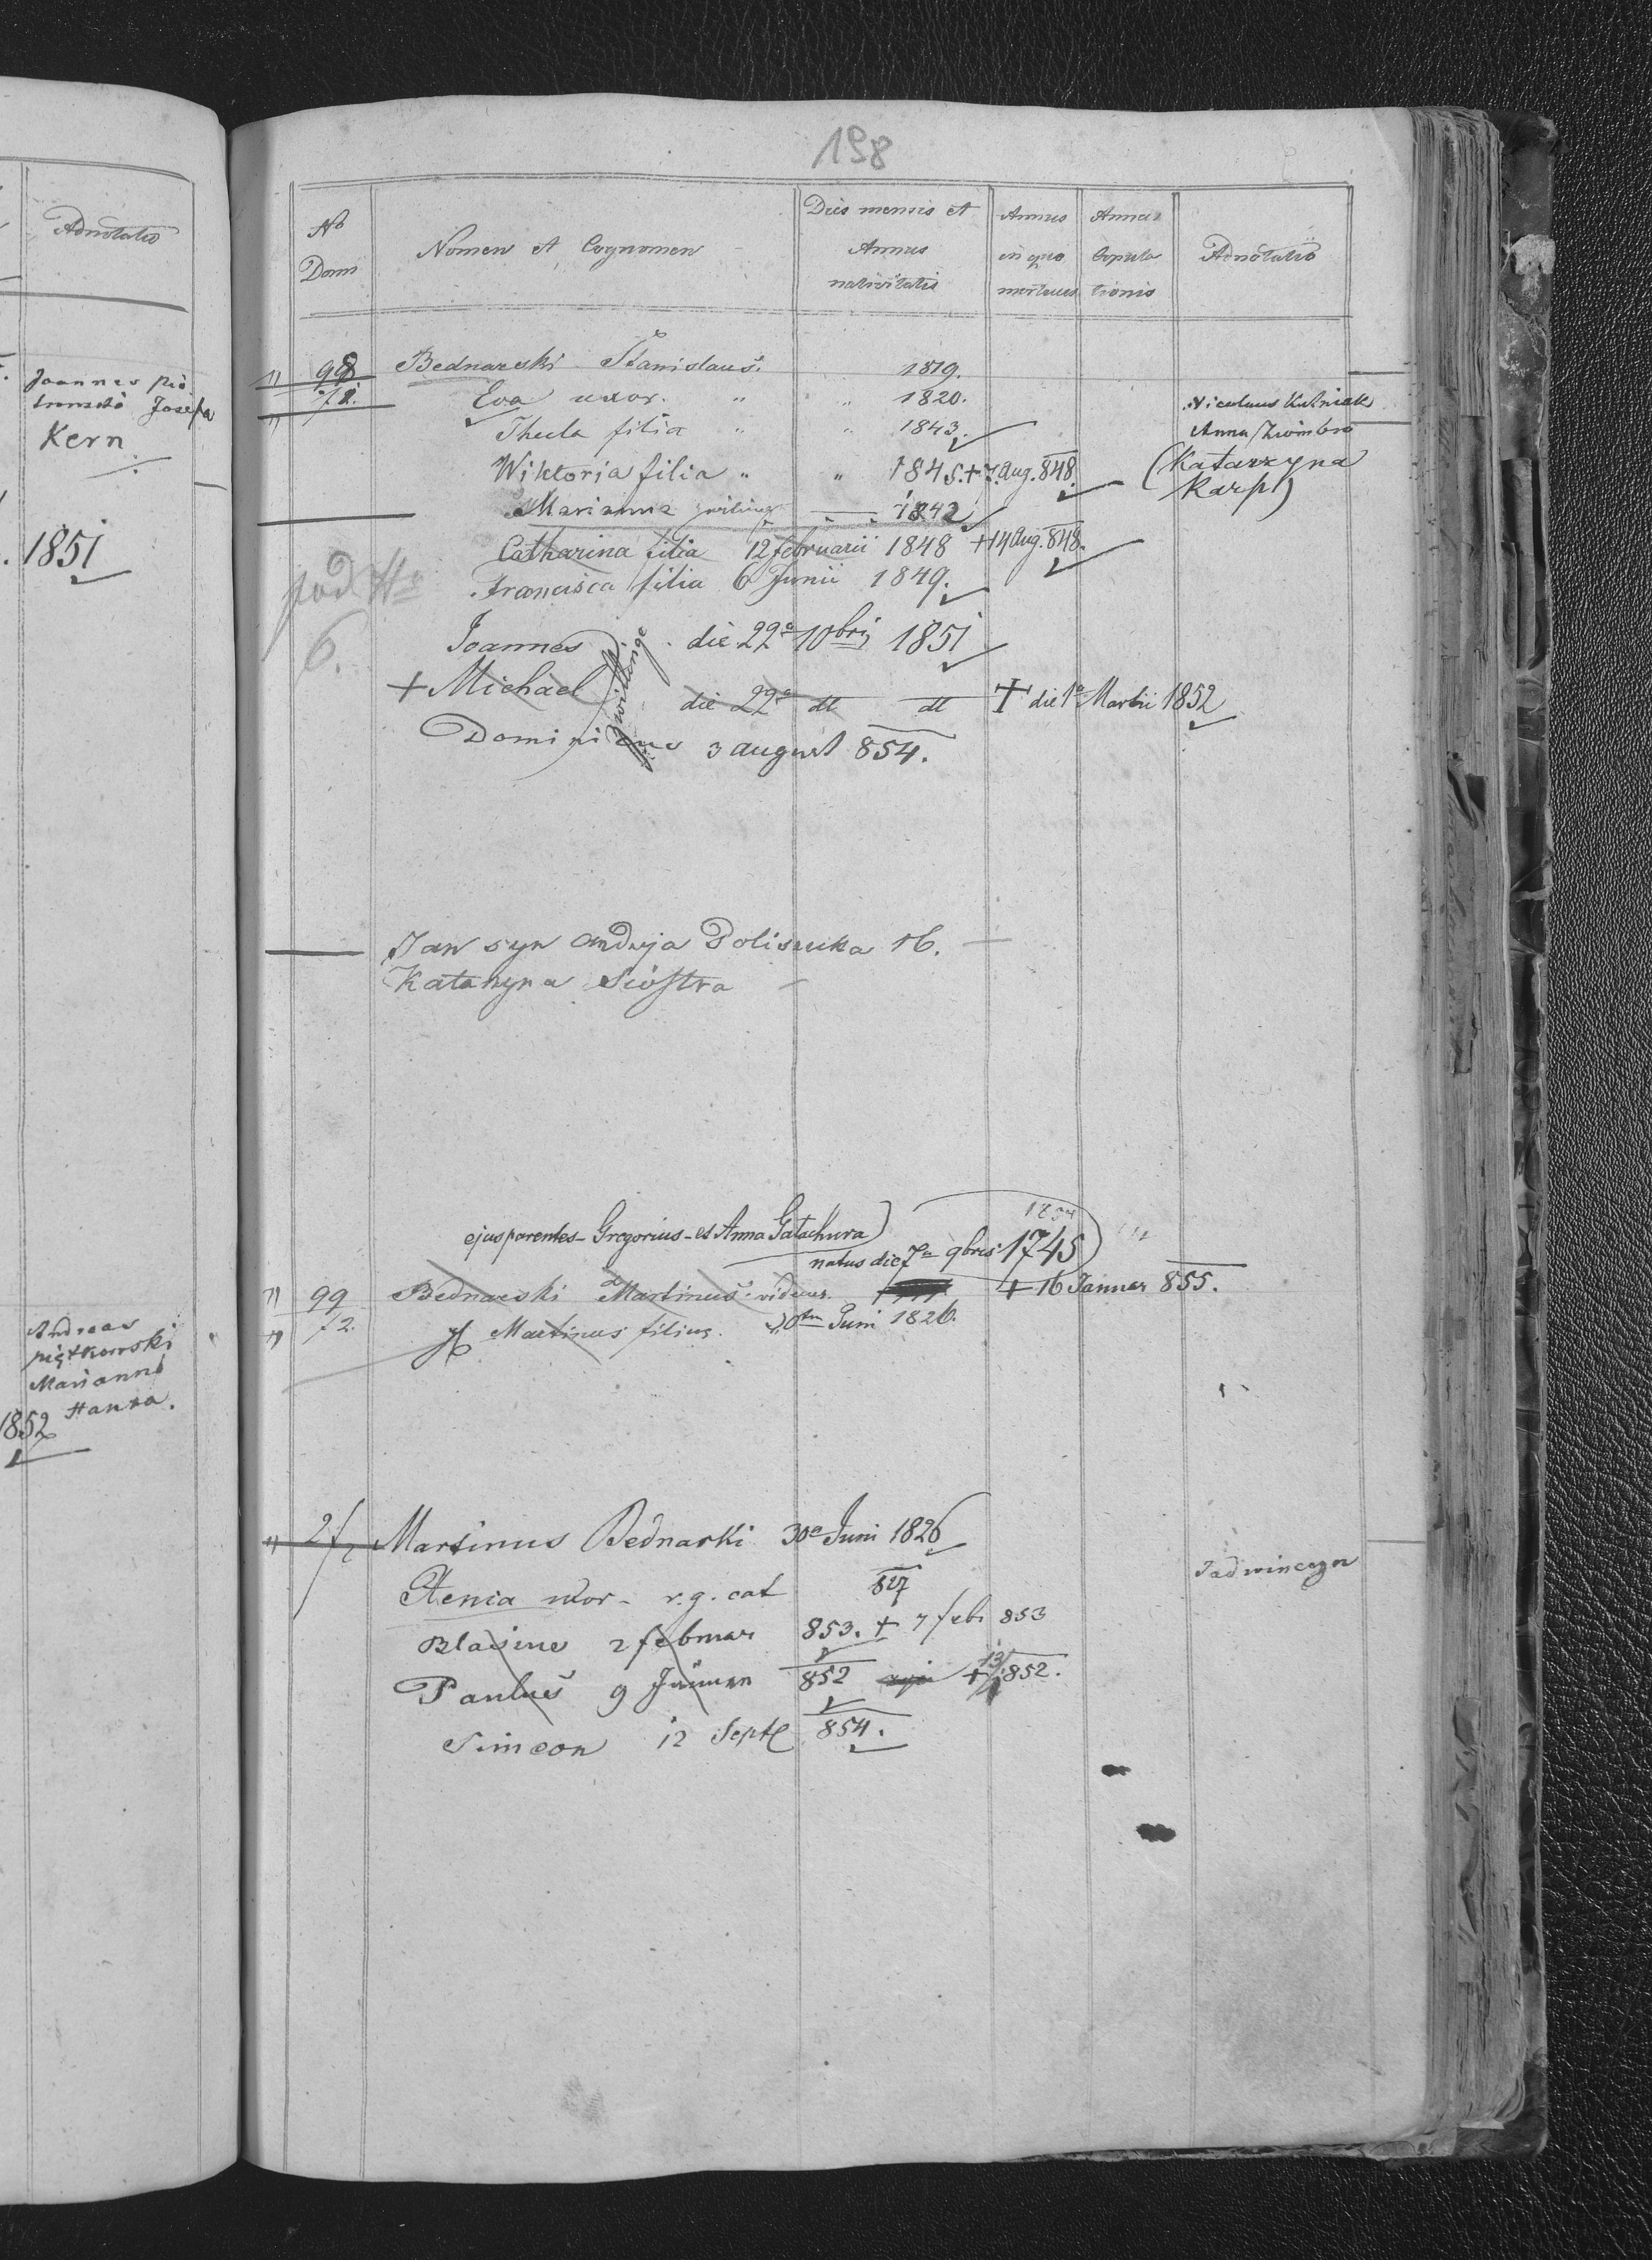 Adnotatio
Joannes
Josepha
Kern
1851
Andreas
piątkowski
Marianna
Hanka.
1852
198
No Dom
Nomen et Cognomen
Dies mensis et Annus nativitatis
Annus in quo mortuus
Annus Copulationis
Adnotatio
98 Bednarski Stanislaus. 1819.
72. Eva uxor. " " 1820. Nicolaus Kuśniak
Thecla filia " " 1843. Anna
Wiktoria filia " " 1845. + 7. Aug. 848. (Katarzyna
Karp)
Marianna 1842
Catharina filia 12 februarii 1848 + 14 Aug. 848.
pod No Francisca filia 6 Junii 1849.
6. Joannes die 22a 10bris 1851
+ Michael die 22a dt dt + die 1a Martii 1852
zwillinge
Dominicus 3 august 854.
Jan syn Andrzja Poliszuka 16.
Katarzyna Siostra
ejus parentes - Gregorius - et Anna Gatachura)
natus die 7a 9bris 1745
99 Bednarski Martinus viduus. + 16 Januar 855.
72. Martinus filius. 30tm Juni 1826.
Martinus Bednarski 30a Juni 1826
Xenia uxor - r. g. cat 827
Blasius 2 februar 853. + 7 febr 853
Paulus 9 Januar 852 + 13/ 852.
Simeon 12 Sept 854.